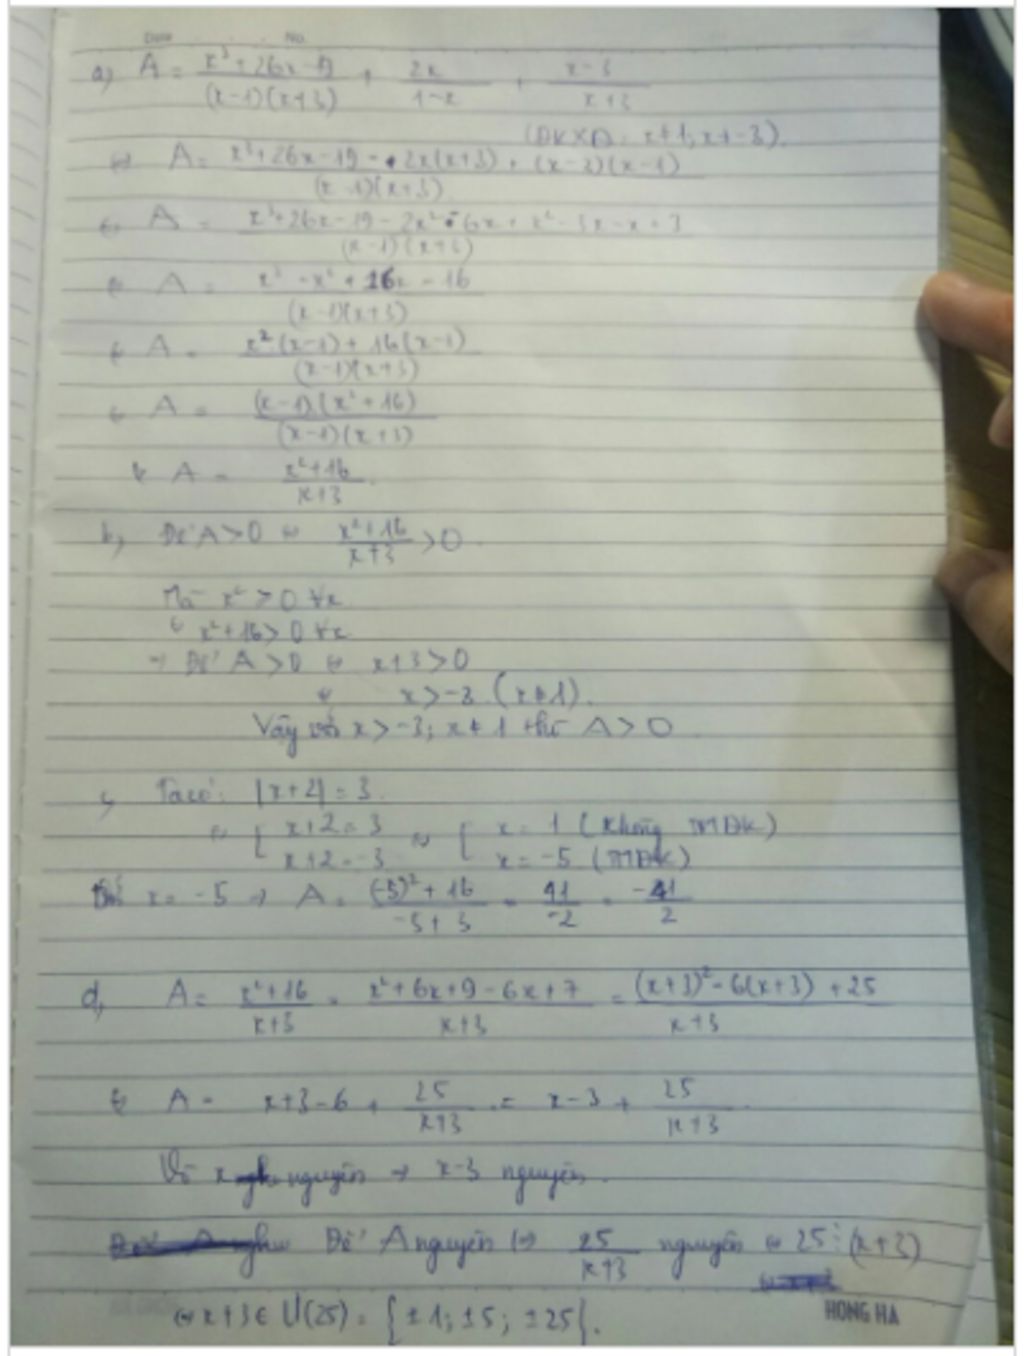 Date No.
a) A = (x³+26x-19)/((x-1)(x+3)) + 2x/(1-x) + (x-3)/(x+3)
(ĐKXĐ: x≠1; x≠-3).
⇔ A = (x³+26x-19-2x(x+3)+(x-3)(x-1))/((x-1)(x+3))
⇔ A = (x³+26x-19-2x²-6x+x²-3x-x+3)/((x-1)(x+3))
⇔ A = (x³-x²+16x-16)/((x-1)(x+3))
⇔ A = (x²(x-1)+16(x-1))/((x-1)(x+3))
⇔ A = ((x-1)(x²+16))/((x-1)(x+3))
⇔ A = (x²+16)/(x+3).
b, Để A>0 ⇔ (x²+16)/(x+3) >0.
Mà x² > 0 ∀x
⇔ x²+16>0 ∀x
→ Để A>0 ⇔ x+3>0
⇔ x>-3 (x≠1).
Vậy với x>-3; x≠1 thì A>0.
c, Ta có: |x+2|=3.
⇔ [ x+2=3 ⇔ [ x=1 (không TMĐK)
x+2=-3 x=-5 (TMĐK)
x=-5 → A = ((-5)²+16)/(-5+3) = 41/-2 = -41/2
d, A = (x²+16)/(x+3) = (x²+6x+9-6x+7)/(x+3) = ((x+3)²-6(x+3)+25)/(x+3)
⇔ A = x+3-6+25/(x+3) = x-3+25/(x+3).
Vì x nguyên → x-3 nguyên.
Để A nguyên ⇔ 25/(x+3) nguyên ⇔ 25⋮(x+3)
⇔ x+3∈Ư(25)={±1;±5;±25}.
HONG HA